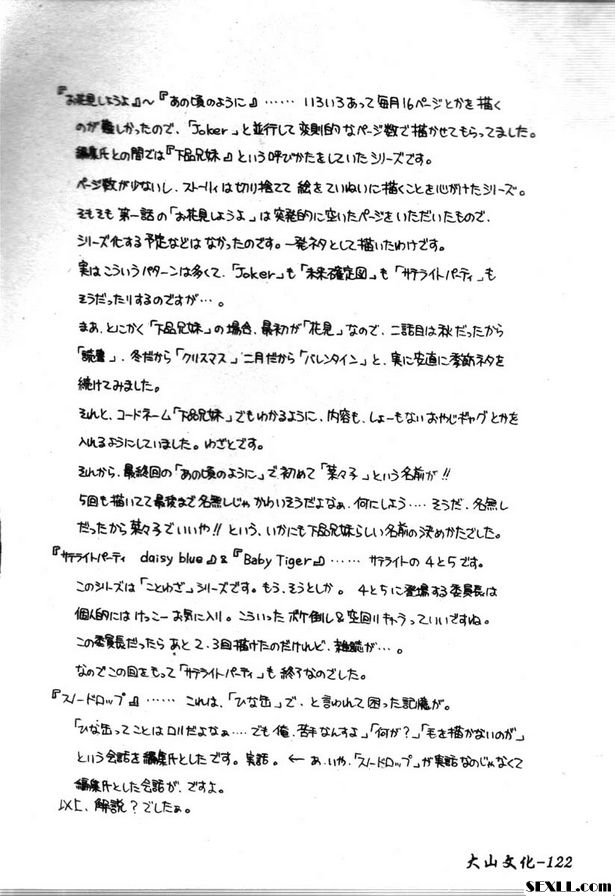 『お花見しようよ』～『あの頃のように』…… いろいろあって毎月16ページとかを描く
のが難しかったので、「Joker」と並行して変則的なページ数で描かせてもらってました。
編集氏との間では『下品兄妹』という呼びかたをしていたシリーズです。
ページ数が少ないし、ストーリィは切り捨てて 絵をていねいに描くことを心がけたシリーズ。
そもそも第一話の「お花見しようよ」は突発的に空いたページをいただいたもので、
シリーズ化する予定などはなかったのです。一発ネタとして描いたわけです。
実はこういうパターンは多くて、「Joker」も「未来確定図」も「サテライトパーティ」も
そうだったりするのですが…。
まあ、とにかく「下品兄妹」の場合、最初が「花見」なので、二話目は秋だったから
「読書」、冬だから「クリスマス」二月だから「バレンタイン」と、実に安直に季節ネタを
続けてみました。
それと、コードネーム「下品兄妹」でもわかるように、内容も、しょーもないおやじギャグとかを
入れるようにしていました。わざとです。
それから、最終回の「あの頃のように」で初めて「菜々子」という名前が!!
5回も描いてて最後まで名無しじゃかわいそうだよなぁ、何にしよう…. そうだ、名無し
だったから菜々子でいいや!! という、いかにも下品兄妹らしい名前の決めかたでした。
『サテライトパーティ daisy blue』&『Baby Tiger』…… サテライトの4と5です。
このシリーズは「ことわざ」シリーズです。もう、そうとしか。 4と5に登場する委員長は
個人的にはけっこーお気に入り。こういったボケ倒し&空回りキャラっていいですね。
この委員長だったらあと2、3回描けたのだけれど、雑誌が…。
なのでこの回をもって「サテライトパーティ」も終了なのでした。
『スノードロップ』…… これは、「ひな缶」で、と言われて困った記憶が。
「ひな缶ってことはロリだよなぁ…でも俺、苦手なんすよ」「何が?」「毛を描かないのが」
という会話を編集氏としたです。実話。 ← あ、いや、「スノードロップ」が実話なのじゃなくて
編集氏とした会話が、ですよ。
以上、解説?でしたぁ。
大山文化-122
SEXLL.COM